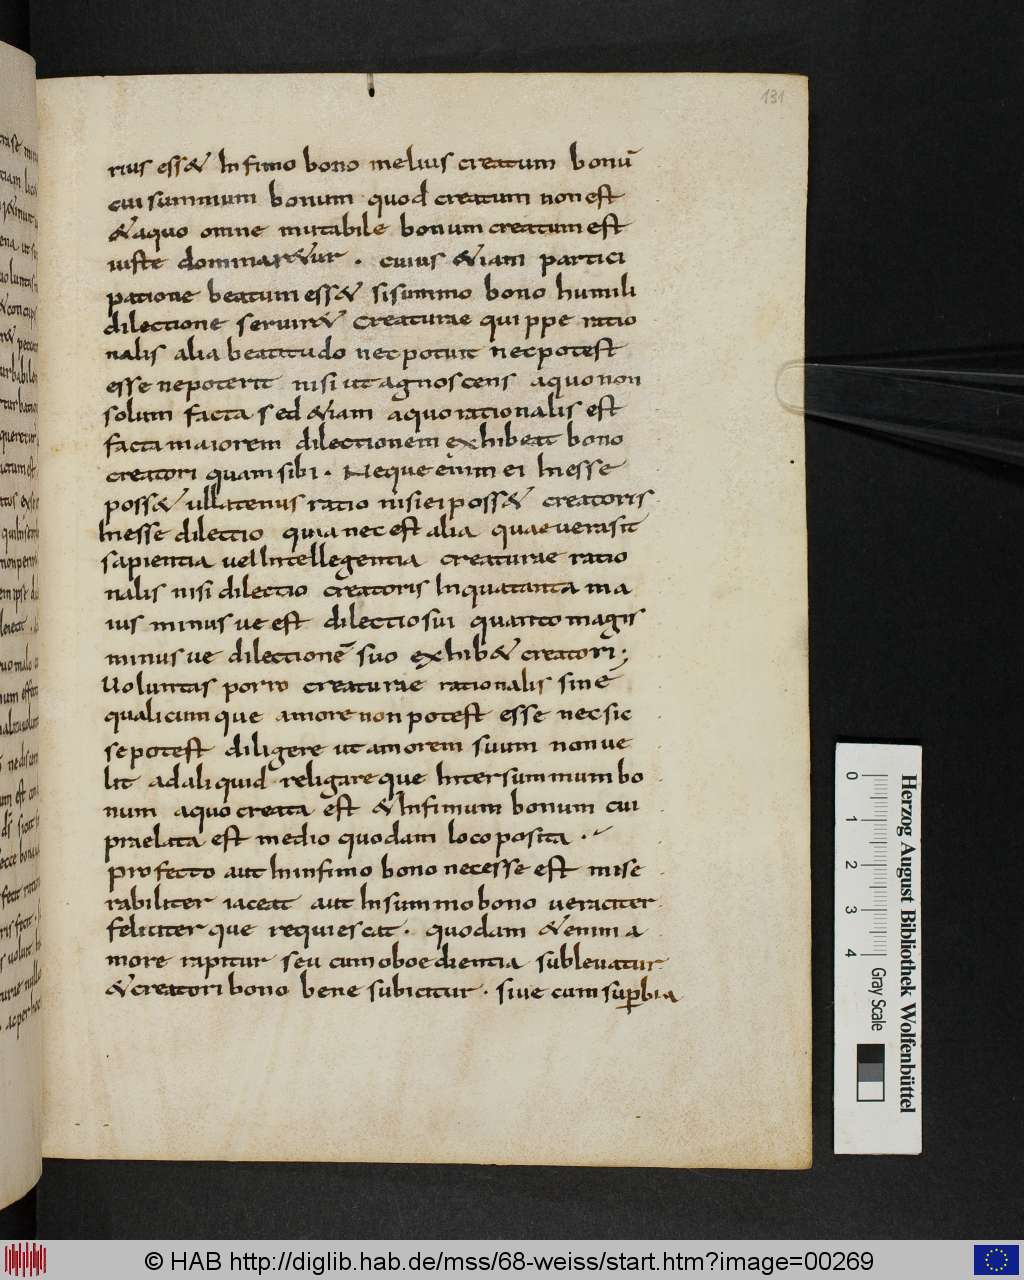 131
rius ess& Infimo bono melius creatum bonū
cui summum bonum quod creatum non est
& a quo omne mutabile bonum creatum est
iuste dominar&ur . cuius &iam partici
patione beatum ess& si summo bono humili
dilectione seruir& Creaturae quippe ratio
nalis alia beatitudo nec potuit nec potest
esse ne poterit nisi ut agnoscens a quo non
solum facta sed &iam a quo rationalis est
facta maiorem dilectionem exhibeat bono
creatori quam sibi . Neque enim ei Inesse
poss& ullatenus ratio nisi ei poss& creatoris
Inesse dilectio quia nec est alia quae uera sit
sapientia uel Intellegentia creaturae ratio
nalis nisi dilectio creatoris In qua tanta ma
ius minus ue est dilectio sui quanto magis
minus ue dilectionē suo exhib& creatori ;
Uoluntas porro creaturae rationalis sine
qualicumque amore non potest esse nec sic
se potest diligere ut amorem suum non ue
lit ad aliquid religare que Inter summum bo
num a quo creata est & Infimum bonum cui
praelata est medio quodam loco posita .
profecto aut In infimo bono necesse est mise
rabiliter iaceat aut In summo bono ueraciter
feliciter que requiescat . quodam &enim a
more rapitur seu cum oboedientia subleuatur
& creatori bono bene subicitur . siue cum suꝑbia
Herzog August Bibliothek Wolfenbüttel
0 1 2 3 4 Gray Scale
© HAB http://diglib.hab.de/mss/68-weiss/start.htm?image=00269